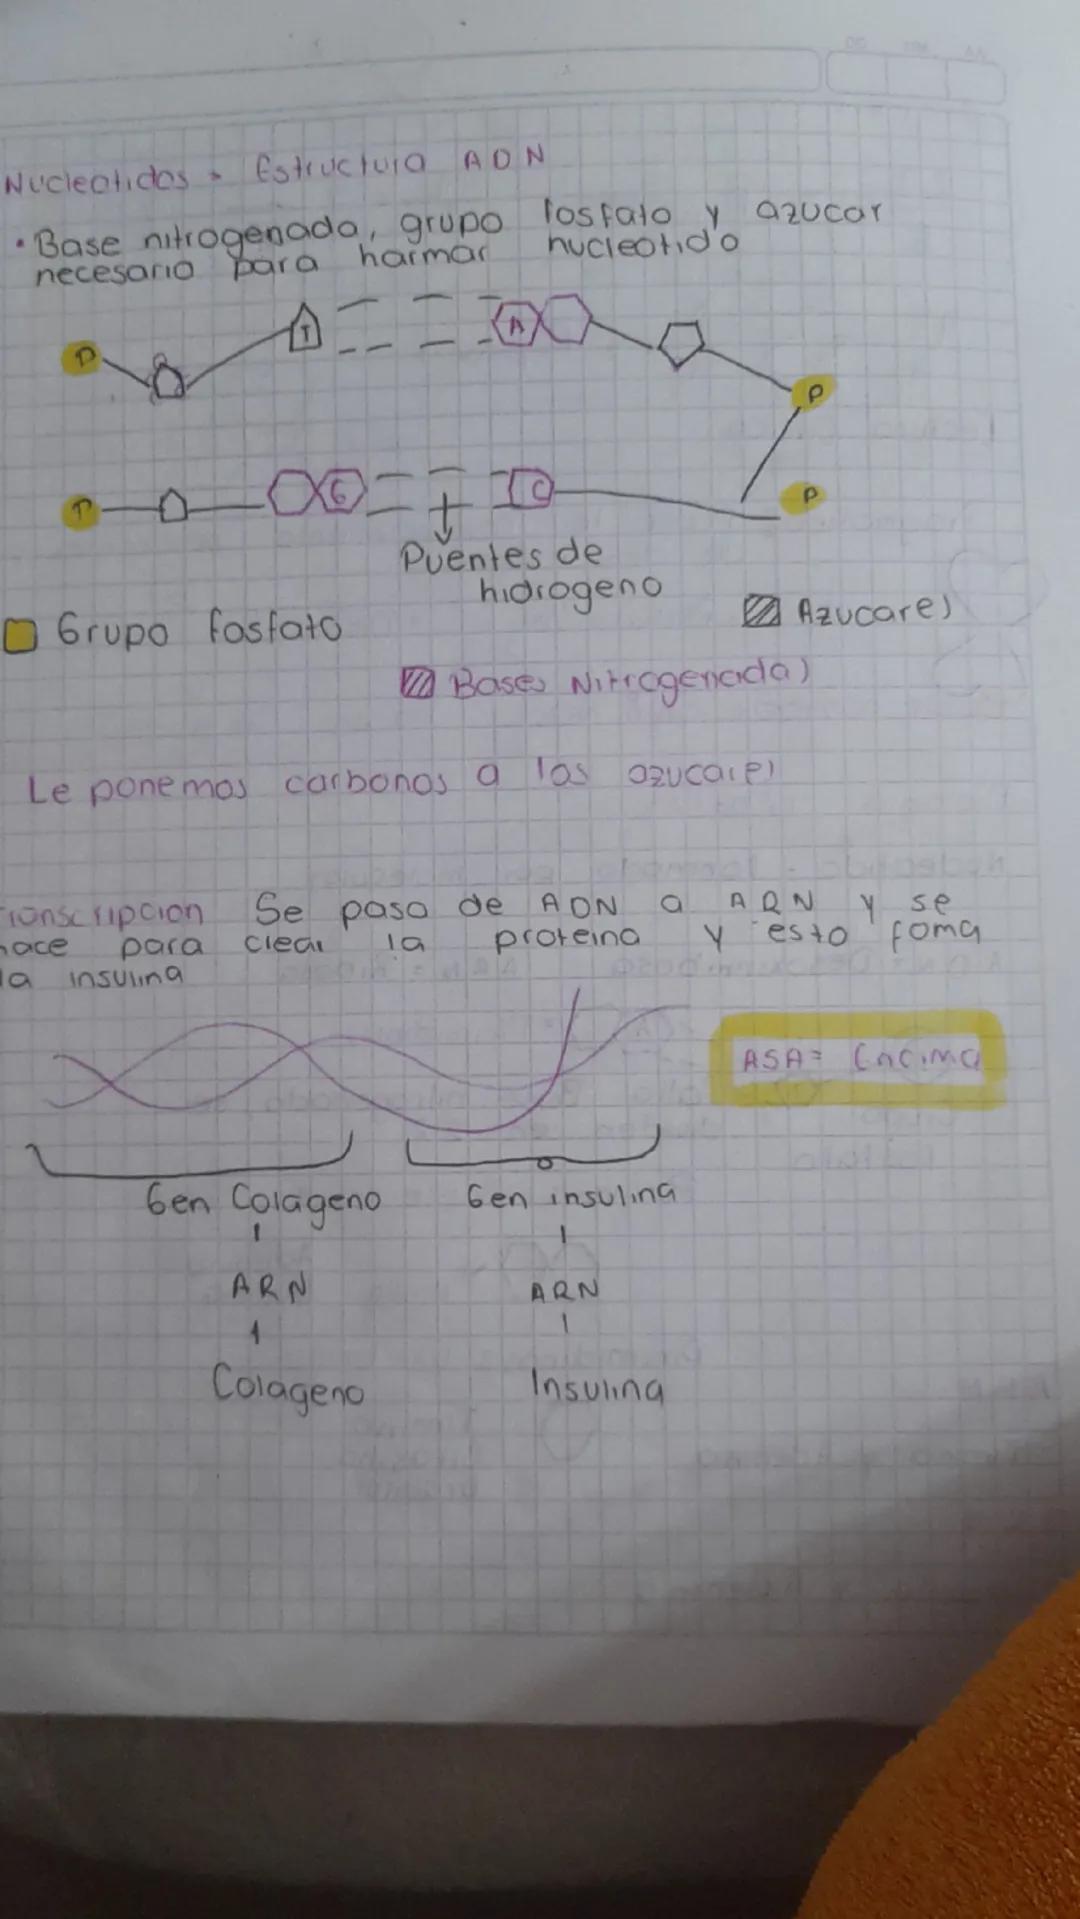 Nucleotidos - Estructura ADN
• Base nitrogenada, grupo fosfato y azucar
necesario para harmar nucleotido
P T A P
P G C P
Puentes de
hidrogeno
Grupo fosfato
Azucares
Bases Nitrogenadas
Le ponemos carbonos a las azucares
Transcripcion Se pasa de ADN a ARN y se
hace para crear la proteina y esto foma
la insulina
ASA= Encima
Gen Colageno Gen insulina
ARN ARN
Colageno Insulina